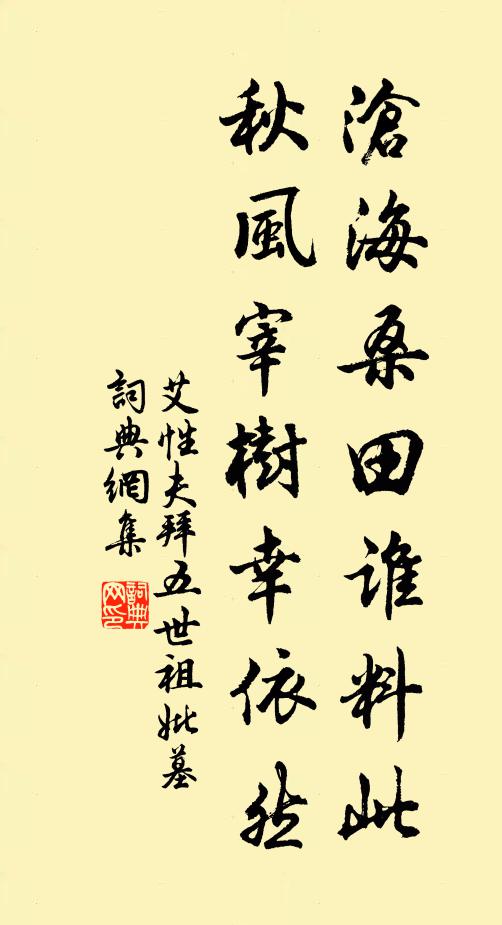 滄海桑田誰料此
秋風宰樹幸依然
艾性夫拜五世祖妣墓
詞典網集
詞典网印